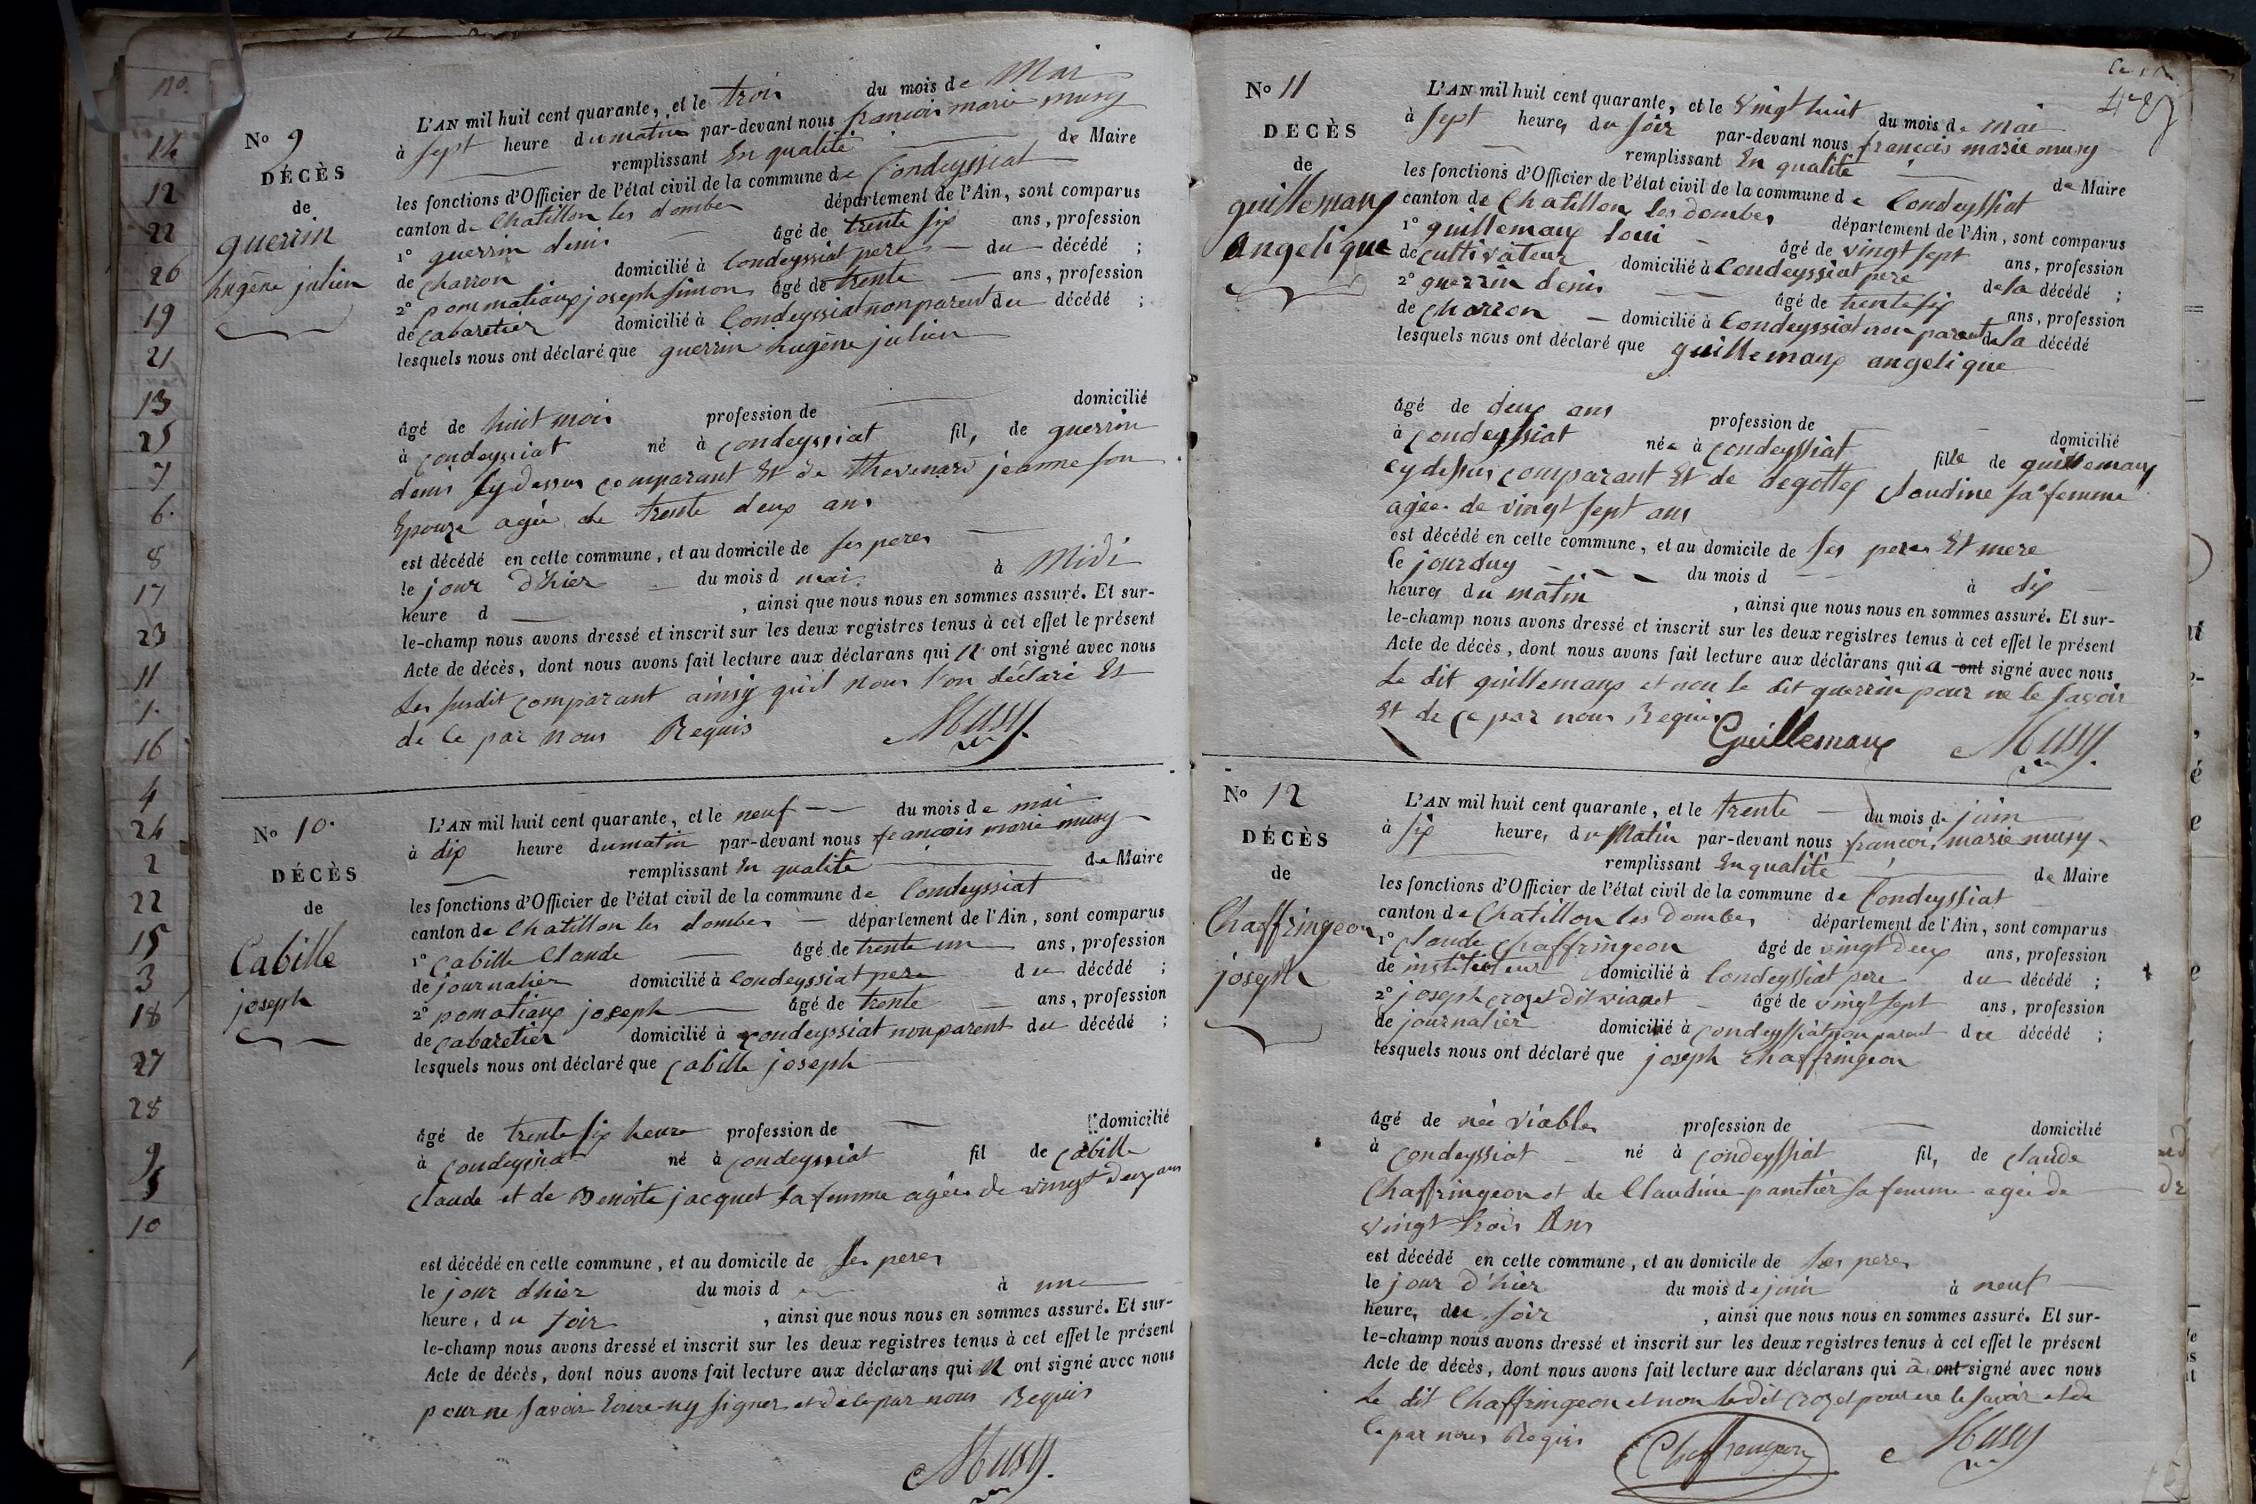 No
14
12
22
26
19
21
13
25
7
6.
8
17
23
11
1.
16
4
24
2
22
15
3
18
27
28
9
5
10
No 9
DÉCÈS
de
guerrin
hugène julien
L'AN mil huit cent quarante, et le trois du mois de Mai
à sept heure du matin par-devant nous francois marie musy
remplissant En qualité de Maire
les fonctions d'Officier de l'état civil de la commune de Condeyssiat
canton de Chatillon les dombes département de l'Ain, sont comparus
1o guerrin denis âgé de trente six ans, profession
de charron domicilié à Condeyssiat pere du décédé ;
2o pommatiaux joseph simon âgé de trente ans, profession
de cabaretier domicilié à Condeyssiat non parent du décédé ;
lesquels nous ont déclaré que guerrin hugène julien
âgé de huit mois profession de domicilié
à Condeyssiat né à Condeyssiat fils de guerrin
denis cy dessus comparant Et de thevenard jeanne son
Epouze agée de trente deux ans
est décédé en cette commune, et au domicile de ses peres
le jour d'hier du mois d mai à Midi
heure d , ainsi que nous nous en sommes assuré. Et sur-
le-champ nous avons dressé et inscrit sur les deux registres tenus à cet effet le présent
Acte de décès, dont nous avons fait lecture aux déclarans qui n' ont signé avec nous
Les susdit comparant ainsy qu'il nous l'on déclaré Et
de Ce par nous Requis
Musy
No 10.
DÉCÈS
de
Cabille
joseph
L'AN mil huit cent quarante, et le neuf du mois de mai
à dix heure du matin par-devant nous françois marie musy
remplissant En qualité de Maire
les fonctions d'Officier de l'état civil de la commune de Condeyssiat
canton de Chatillon les dombes département de l'Ain, sont comparus
1o Cabille Claude âgé de trente un ans, profession
de journalier domicilié à Condeyssiat pere du décédé ;
2o pomatiaux joseph âgé de trente ans, profession
de cabaretier domicilié à Condeyssiat non parent du décédé ;
lesquels nous ont déclaré que Cabille joseph
âgé de trente six heure profession de domicilié
à Condeyssiat né à Condeyssiat fil de Cabille
Claude et de Benoite jacquet sa femme agée de vingt deux ans
est décédé en cette commune, et au domicile de ses peres
le jour dhier du mois d à une
heure, du soir , ainsi que nous nous en sommes assuré. Et sur-
le-champ nous avons dressé et inscrit sur les deux registres tenus à cet effet le présent
Acte de décès, dont nous avons fait lecture aux déclarans qui n ont signé avec nous
pour ne savoir Ecrire ny signer et de ce par nous Requis
Musy.
No 11
DECÈS
de
guillemaux
angelique
L'AN mil huit cent quarante, et le vingt huit du mois de mai
à sept heures du soir par-devant nous françois marie musy
remplissant En qualité de Maire
les fonctions d'Officier de l'état civil de la commune de Condeyssiat
canton de Chatillon les dombes département de l'Ain, sont comparus
1o guillemaux loui âgé de vingt sept ans, profession
de cultivateur domicilié à Condeyssiat pere de la décédé ;
2o guerrin denis âgé de trente six ans, profession
de charron domicilié à Condeyssiat non parent de la décédé
lesquels nous ont déclaré que guillemaux angelique
âgé de deux ans profession de
à Condeyssiat née à Condeyssiat domicilié
fille de guillemaux
cy dessus comparant Et de degottex Claudine sa femme
agée de vingt sept ans
est décédé en cette commune, et au domicile de ses peres Et mere
le jourduy du mois d à dix
heures du matin , ainsi que nous nous en sommes assuré. Et sur-
le-champ nous avons dressé et inscrit sur les deux registres tenus à cet effet le présent
Acte de décès, dont nous avons fait lecture aux déclarans qui a ont signé avec nous
Le dit guillemaux et non le dit guerrin pour ne le savoir
Et de Ce par nous Requis
Guillemaux Musy.
No 12
DÉCÈS
de
Chaffringeon
joseph
L'AN mil huit cent quarante, et le trente du mois de juin
à six heure, du Matin par-devant nous françois marie musy
remplissant En qualité de Maire
les fonctions d'Officier de l'état civil de la commune de Condeyssiat
canton de Chatillon les dombes département de l'Ain, sont comparus
1o Claude Chaffringeon âgé de vingt deux ans, profession
de instituteur domicilié à Condeyssiat pere du décédé ;
2o joseph crozet dit viannet âgé de vingt sept ans, profession
de journalier domicilié à Condeyssiat non parent du décédé ;
lesquels nous ont déclaré que joseph Chaffringeon
âgé de née viables profession de domicilié
à Condeyssiat né à Condeyssiat fils de Claude
Chaffringeon et de Claudine panetier sa femme agée de
vingt trois Ans
est décédé en cette commune, et au domicile de ses peres
le jour d'hier du mois de juin à neuf
heure, du soir , ainsi que nous nous en sommes assuré. Et sur-
le-champ nous avons dressé et inscrit sur les deux registres tenus à cet effet le présent
Acte de décès, dont nous avons fait lecture aux déclarans qui a ont signé avec nous
Le dit Chaffringeon et non le dit crozet pour ne le savoir et de
Ce par nous Requis
Chaffringeon Musy